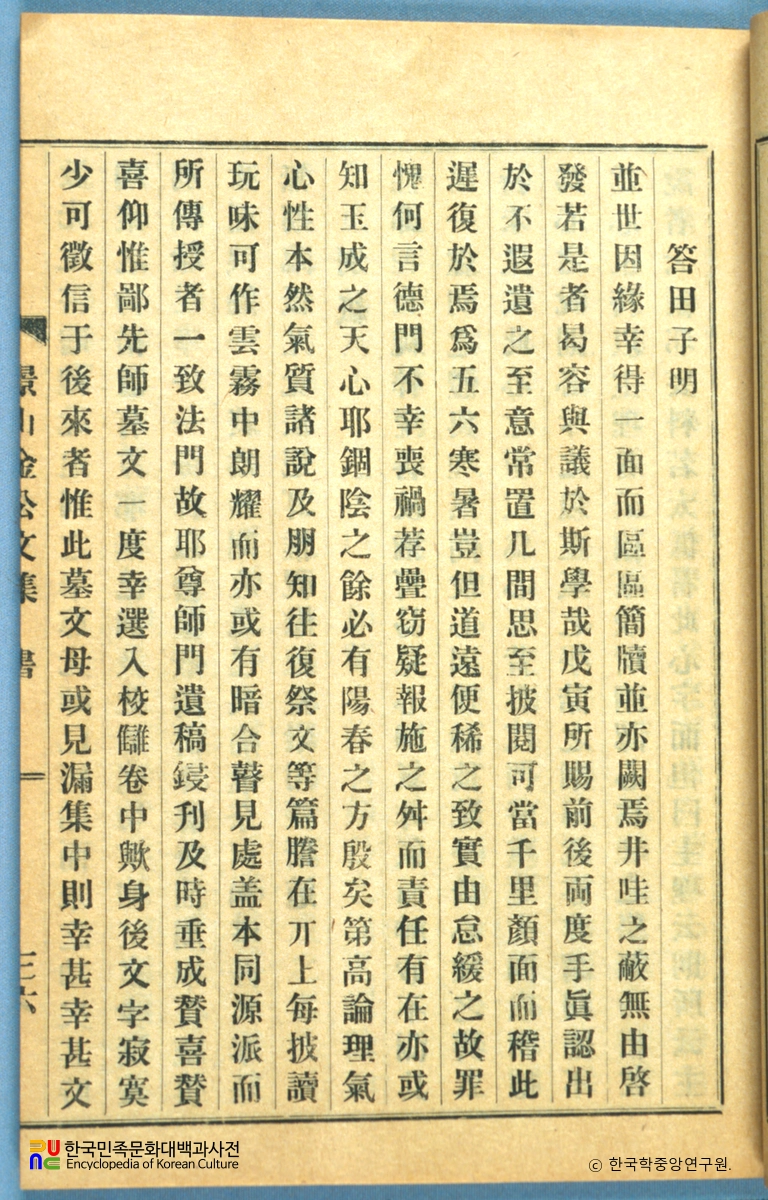 答田子明
並世因緣幸得一面而區區簡牘並亦闕焉井哇之蔽無由啓
發若是者曷容與議於斯學哉戊寅所賜前後両度手眞認出
於不遐遺之至意常置几間思至披閱可當千里顏面而稽此
遲復於焉爲五六寒暑豈但道遠便稀之致實由怠緩之故罪
愧何言德門不幸喪禍荐疊窃疑報施之舛而責任有在亦或
知玉成之天心耶錮陰之餘必有陽春之方殷矣第高論理氣
心性本然氣質諸說及朋知往復祭文等篇謄在丌上每披讀
玩味可作雲霧中朗耀而亦或有暗合瞽見處盖本同源派而
所傳授者一致法門故耶尊師門遺稿鋟刋及時垂成賛喜賛
喜仰惟鄙先師墓文一度幸選入校讎卷中歟身後文字寂寞
少可徵信于後來者惟此墓文母或見漏集中則幸甚幸甚文
景山金公文集 書 三六
한국민족문화대백과사전
Encyclopedia of Korean Culture
© 한국학중앙연구원.